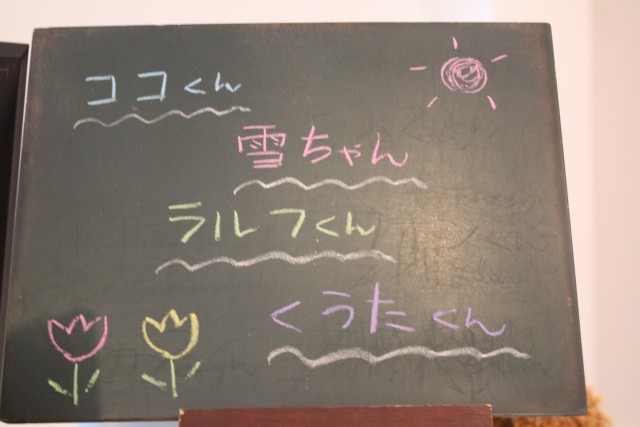 ココくん
雪ちゃん
ラルフくん
くうたくん